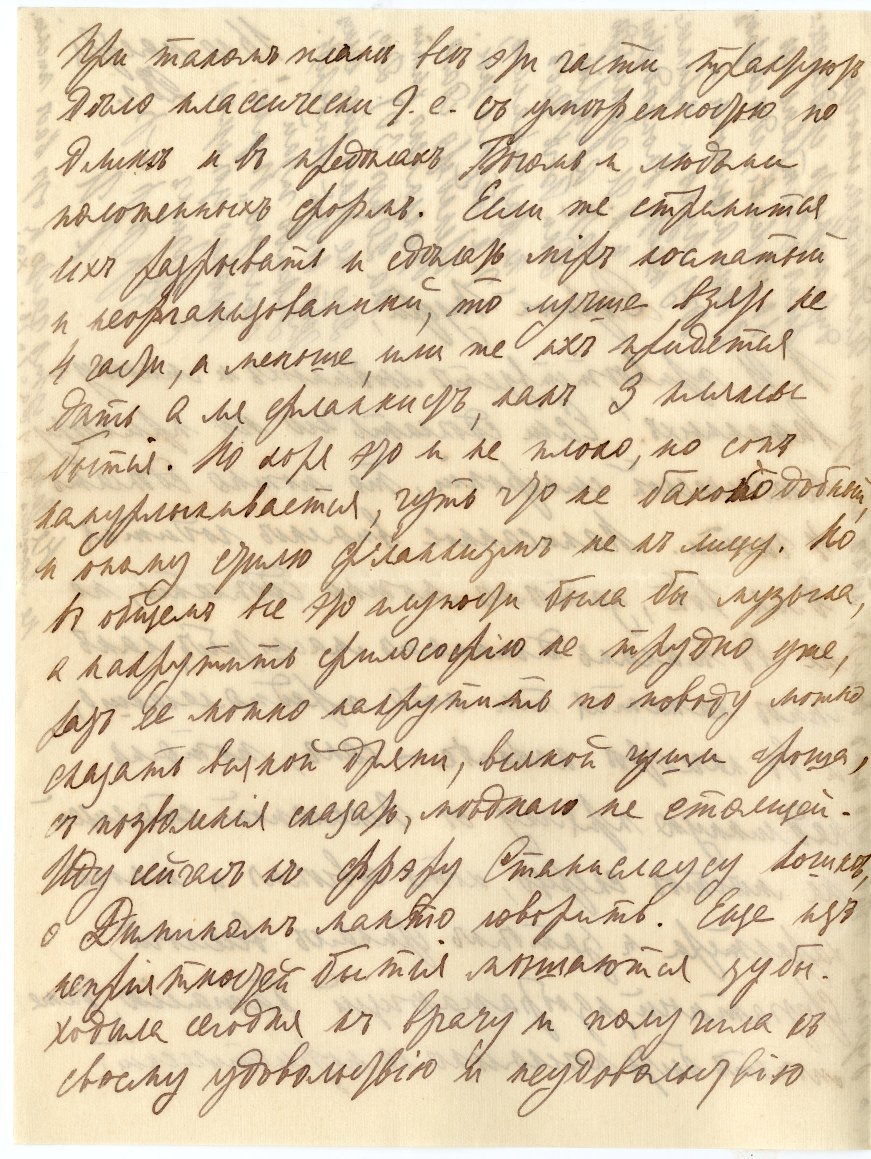 При такомъ планѣ всѣ эти части трактуютъ
дѣло классически т. е. съ умѣренностью по
длинѣ и въ предѣлахъ Богомъ и людьми
положенныхъ формъ. Если же стремиться
ихъ разрывать и сдѣлать міръ косматый
и неорганизованный, то лучше взять не
4 части, а меньше, или же ихъ придется
дать а ля франкистъ, какъ 3 пляски
бытія. Но хотя это и не плохо, но сонъ
намурлыкивается, чуть что не бахоподобный,
и оному стилю франкизмъ не къ лицу. Но
въ общемъ все это глупости была бы музыка,
а накрутить философію не трудно уже,
разъ ее можно накрутить по поводу можно
сказать всякой дряни, всякой гроша,
съ позволенія сказать, мѣднаго не стоящей.
Иду сейчасъ къ фрэру Станислаусу Кошкѣ,
о говорить. Еще изъ
непріятностей бытія мѣшаются зубы.
ходила сегодня къ врачу и получила къ
своему удовольствію и неудовольствію